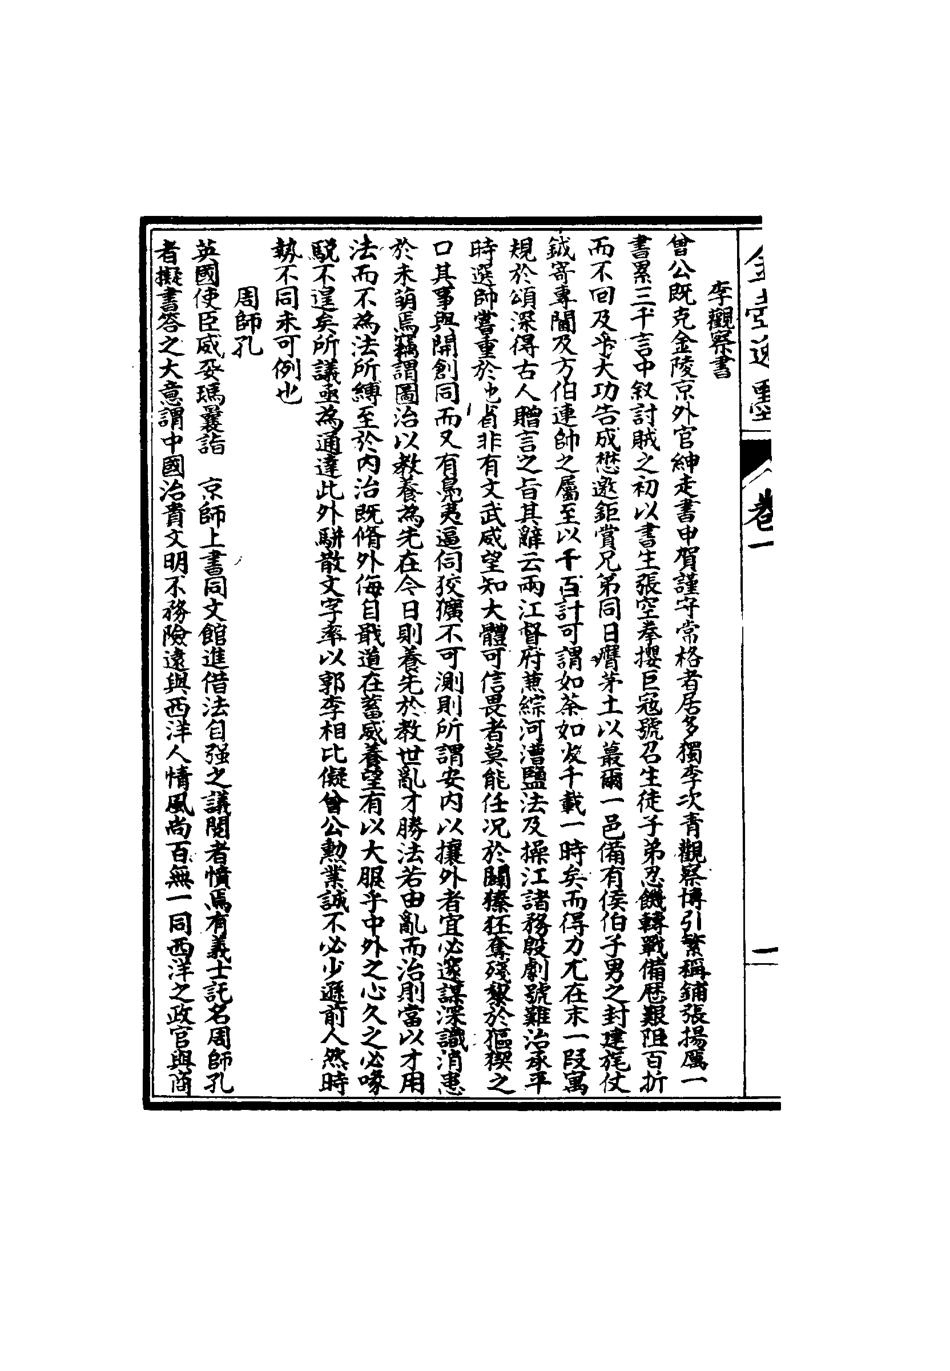 金壺逸墨
卷一
一
李觀察書
曾公既克金陵京外官紳走書申賀謹守常格者居多獨李次青觀察博引繁稱鋪張揚厲一
書累三千言中叙討賊之初以書生張空拳攖巨寇號召生徒子弟忍饑轉戰備歷艱阻百折
而不回及乎大功告成懋邀鉅賞兄弟同日膺茅土以蕞爾一邑備有侯伯子男之封建旄仗
鉞寄專閫及方伯連帥之屬至以千百計可謂如荼如火千載一時矣而得力尤在末一段寓
規於頌深得古人贈言之旨其辭云兩江督府兼綜河漕鹽法及操江諸務殷劇號難治承平
時選帥嘗重於他省非有文武威望知大體可信畏者莫能任况於闢榛狉奪殘黎於貙猰之
口其事與開創同而又有島夷逼伺狡獷不可測則所謂安内以攘外者宜必邃謀深識消患
於未萌焉竊謂圖治以教養為先在今日則養先於教世亂才勝法若由亂而治則當以才用
法而不為法所縛至於内治既脩外侮自戢道在蓄威養望有以大服乎中外之心久之必喙
駾不遑矣所議亟為通達此外駢散文字率以郭李相比儗曾公勲業誠不必少遜前人然時
勢不同未可例也
周師孔
英國使臣威妥瑪曩詣 京師上書同文館進借法自强之議閱者憤焉有義士託名周師孔
者擬書答之大意謂中國治貴文明不務險遠與西洋人情風尚百無一同西洋之政官與商